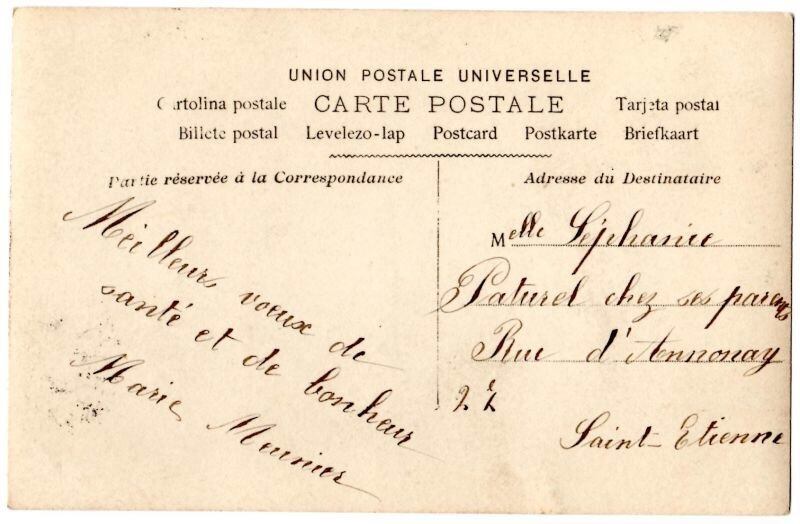 UNION POSTALE UNIVERSELLE
Cartolina postale CARTE POSTALE Tarjeta postal
Billete postal Levelezo-lap Postcard Postkarte Briefkaart
Partie réservée à la Correspondance
Adresse du Destinataire
Meilleurs voeux de
santé et de bonheur
Marie Meunier
Melle Séphanie
Paturel chez ses parents
Rue d'Annonay
Saint-Etienne